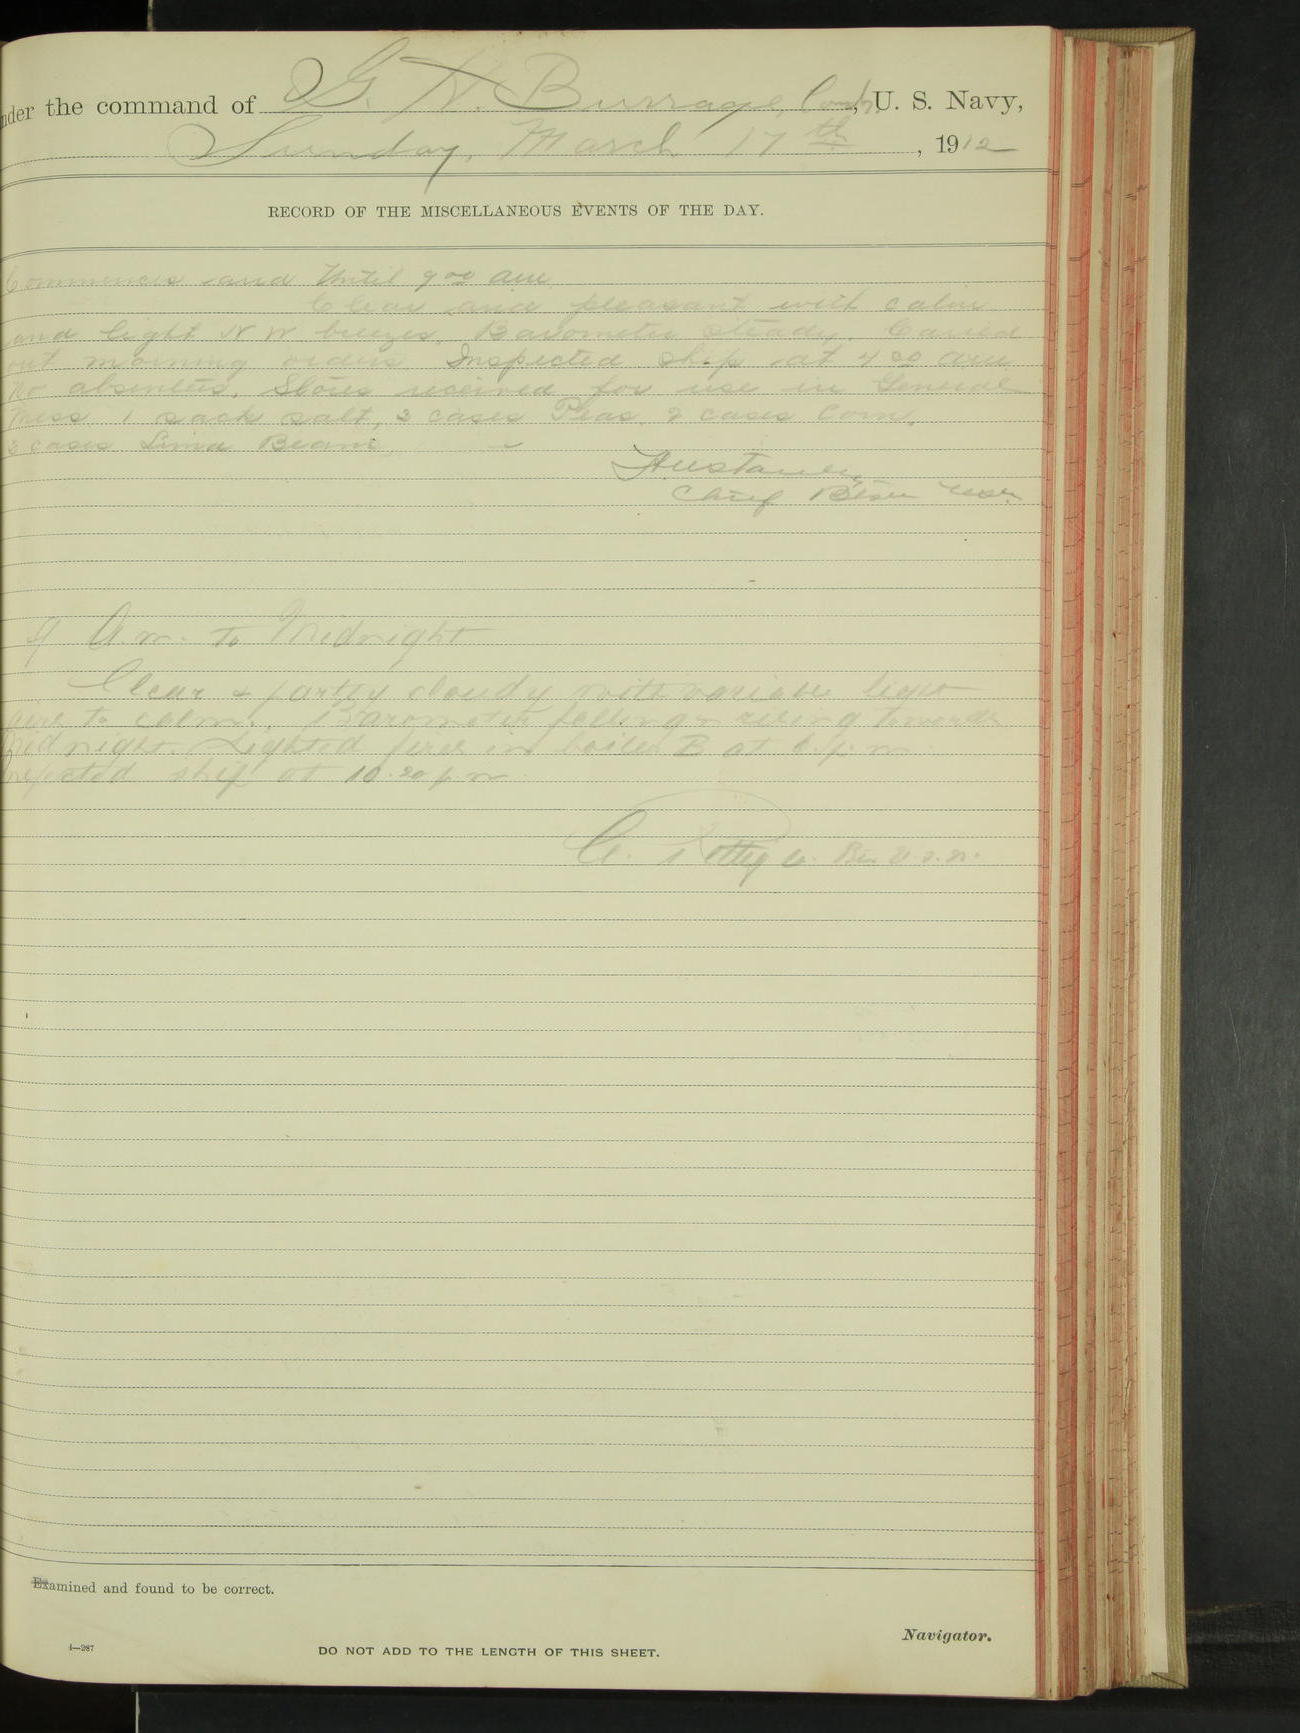 nder the command of G. W. Burrage, Comdr, U. S. Navy,
Sunday, March 17th, 1912
RECORD OF THE MISCELLANEOUS EVENTS OF THE DAY.
Commences and Until 9 00 am
Clear and pleasant with calm
and light N W breezes. Barometer steady. Carried
out morning orders. Inspected ship at 4 00 am
No absentees. Stores received for use in General
Mess 1 sack salt, 3 cases Peas, 2 cases Corn,
3 cases Lima Beans.
Chief Btswn USN.
9 A.m. to Midnight
Clear & partly cloudy with variable light
airs to calm. Barometer falling & rising towards
Midnight. Lighted fires in boiler B at 6 p.m.
nspected ship at 10.20 p.m
U.S.N.
Examined and found to be correct.
Navigator.
4—287
DO NOT ADD TO THE LENGTH OF THIS SHEET.